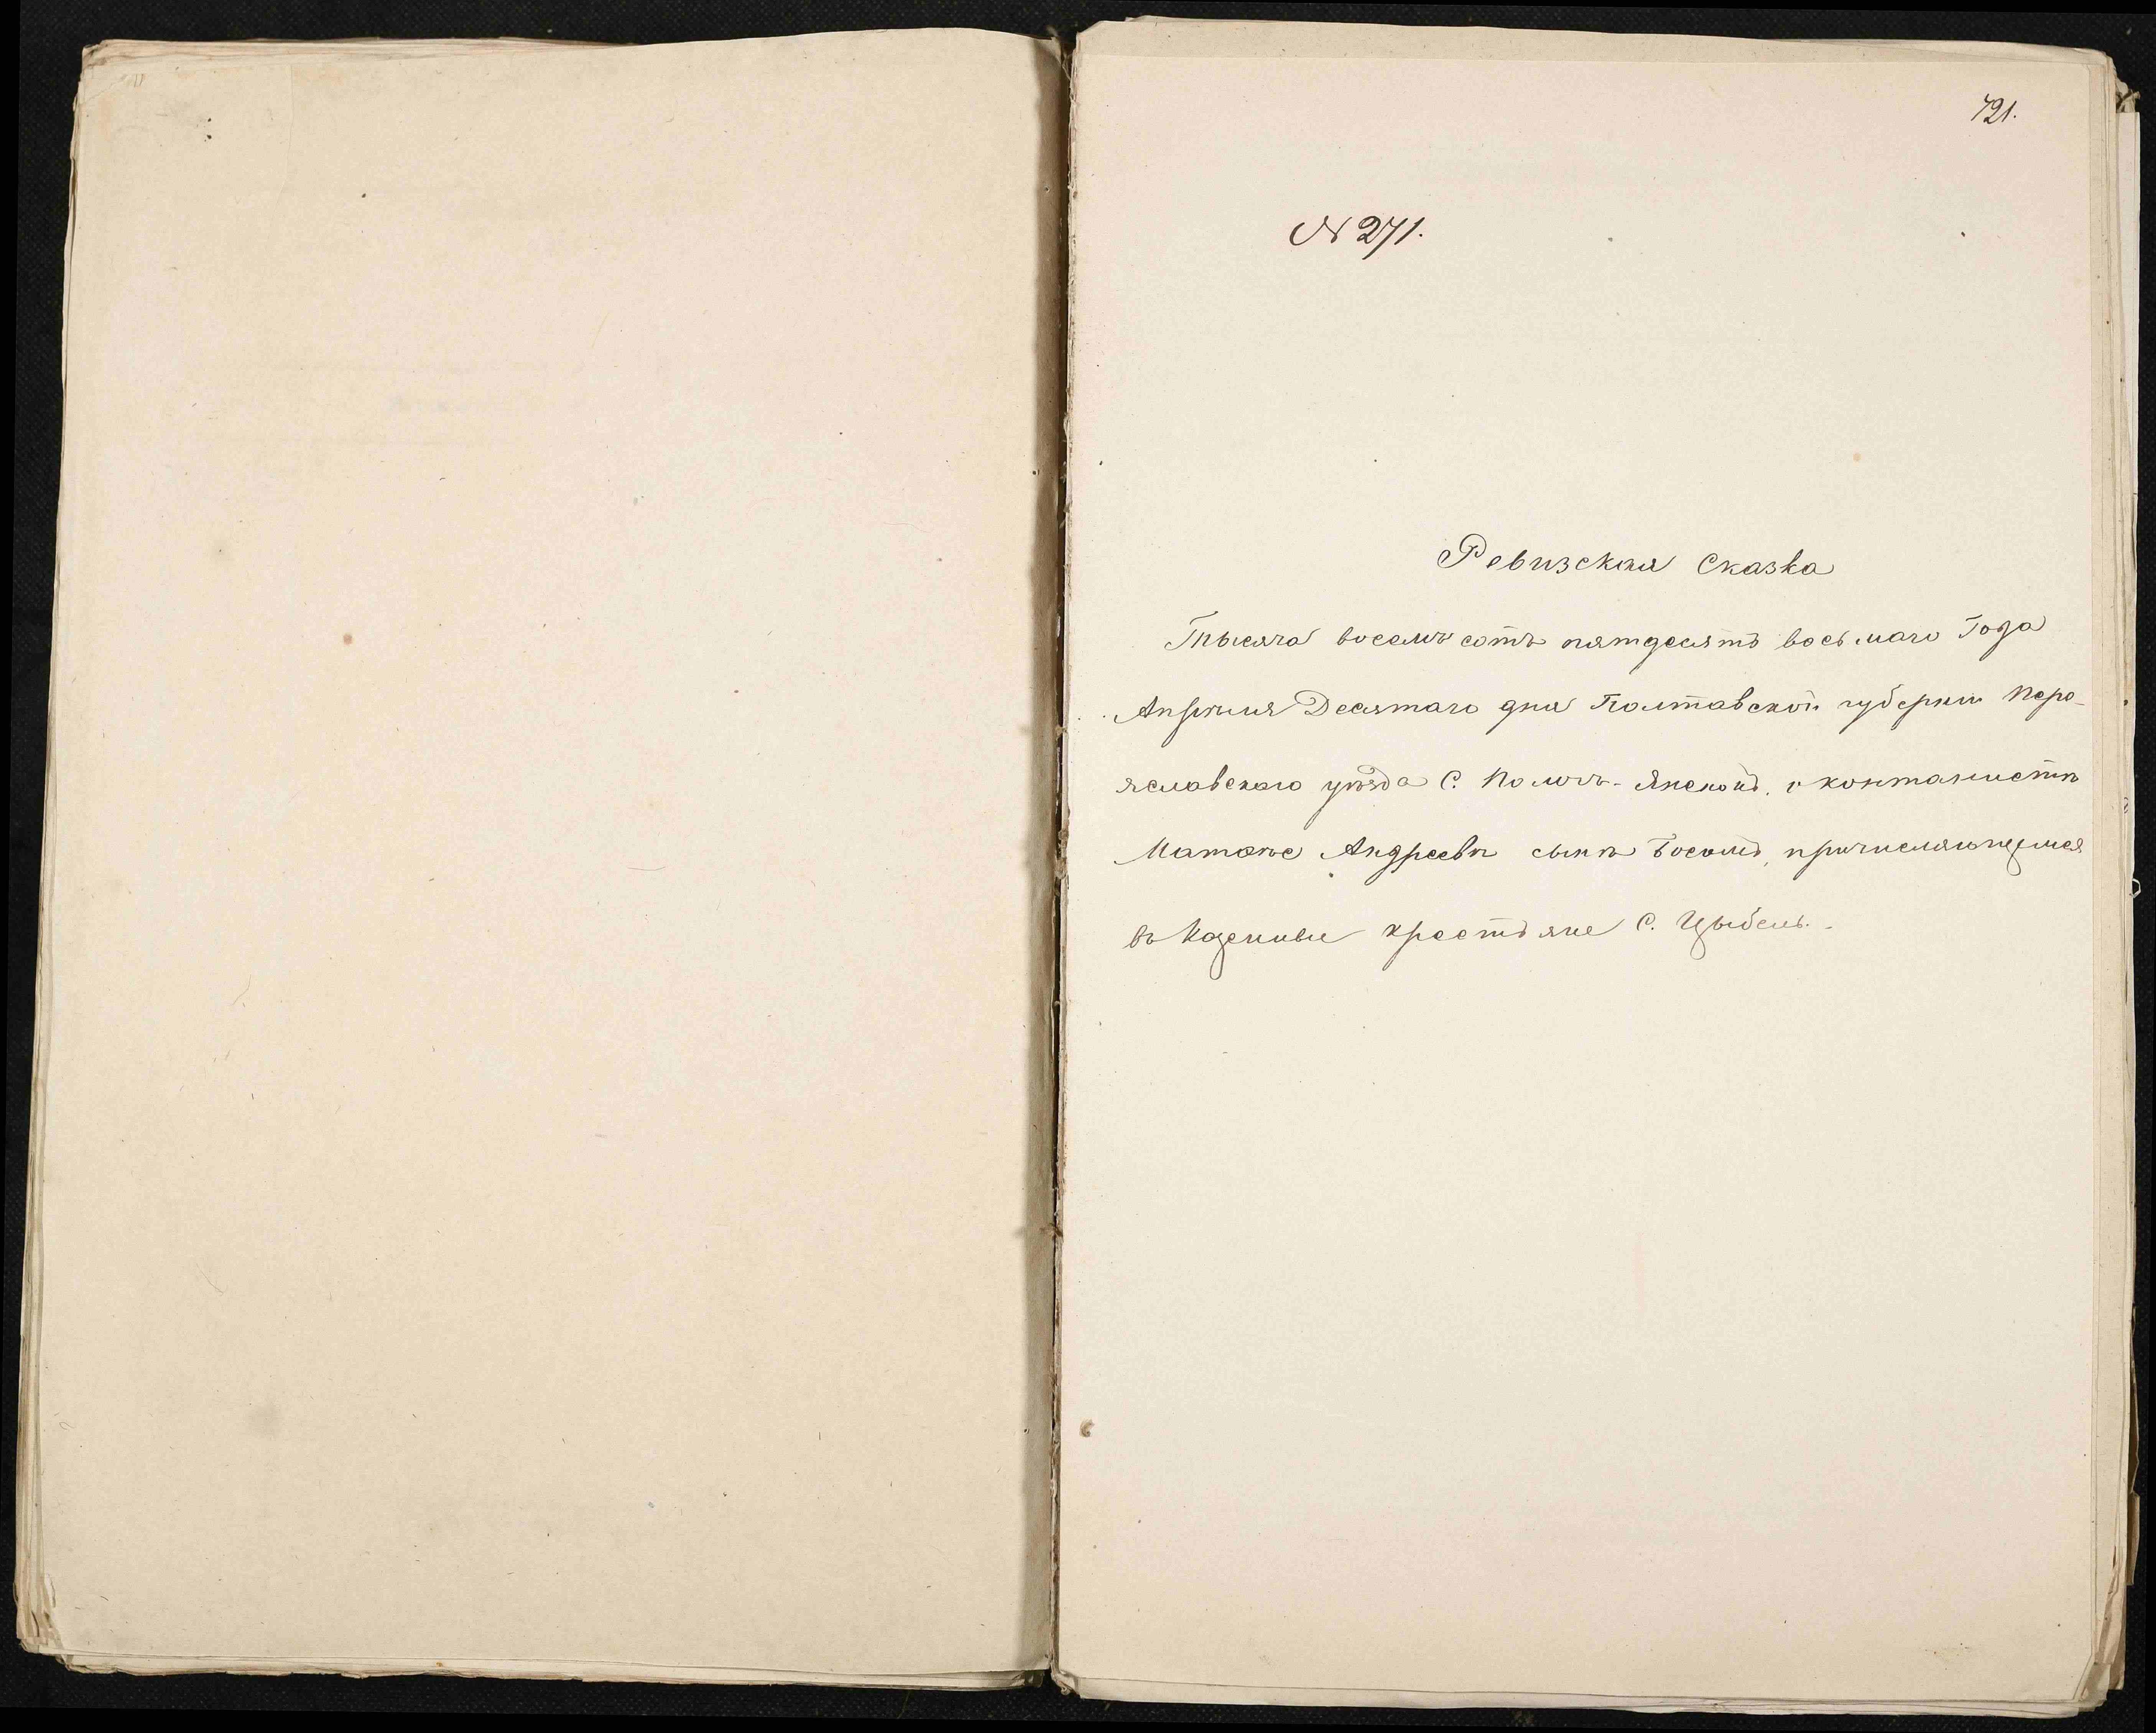 721.
№ 271.
Ревизская Сказка
Тысяча восемь сотъ пятдесятъ восьмаго Года
Апрѣля Десятаго дня Полтавской губерніи Пере-
яславскаго уѣзда С. Помокъ. о кантанистѣ
Матвѣе Андреевѣ сынѣ Босомъ, причисляющемся
въ Казенные крестьяне С. Цыбель.